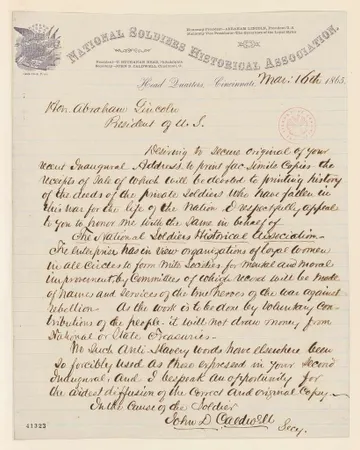 NATIONAL SOLDIERS HISTORICAL ASSOCIATION.
Head Quarters, Cincinnati, Mar: 16th 1865.
Hon. Abraham Lincoln
President of U. S.
Desiring to secure original of your
recent Inaugural Address to print fac-simile Copies the
receipts of Sale of which will be devoted to printing history
of the deeds of the private Soldiers who have fallen in
this war for the life of the Nation I respectfully appeal
to you to honor me with the Same in behalf of
The National Soldiers Historical Association-
The Enterprise has in view organizations of loyal women
in all Circles to form Societies for Mental and Moral
improvement, by Committees of which record will be made
of names and services of the true heroes of the war against
rebellion - As the work is to be done by Voluntary Con-
tributions of the people - it will not draw money from
National or State Treasuries-
No Such Anti Slavery words have elsewhere been
So forcibly used as those expressed in your Second
Inaugural, And I bespeak an opportunity for
the widest diffusion of the Correct And original Copy-
In the Cause of the Soldier
John D Caldwell
Secy.
41323